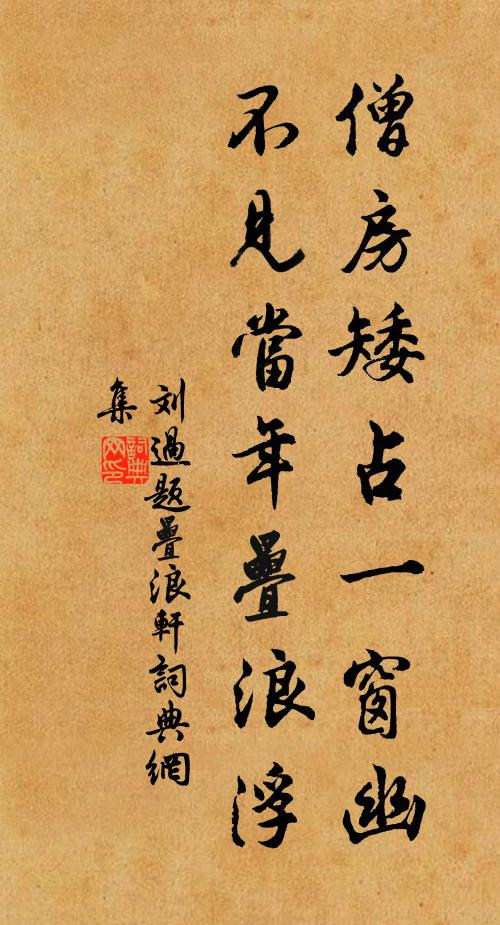 僧房矮占一窗幽
不見當年疊浪浮
刘過題疊浪軒詞典網
集
詞典網印